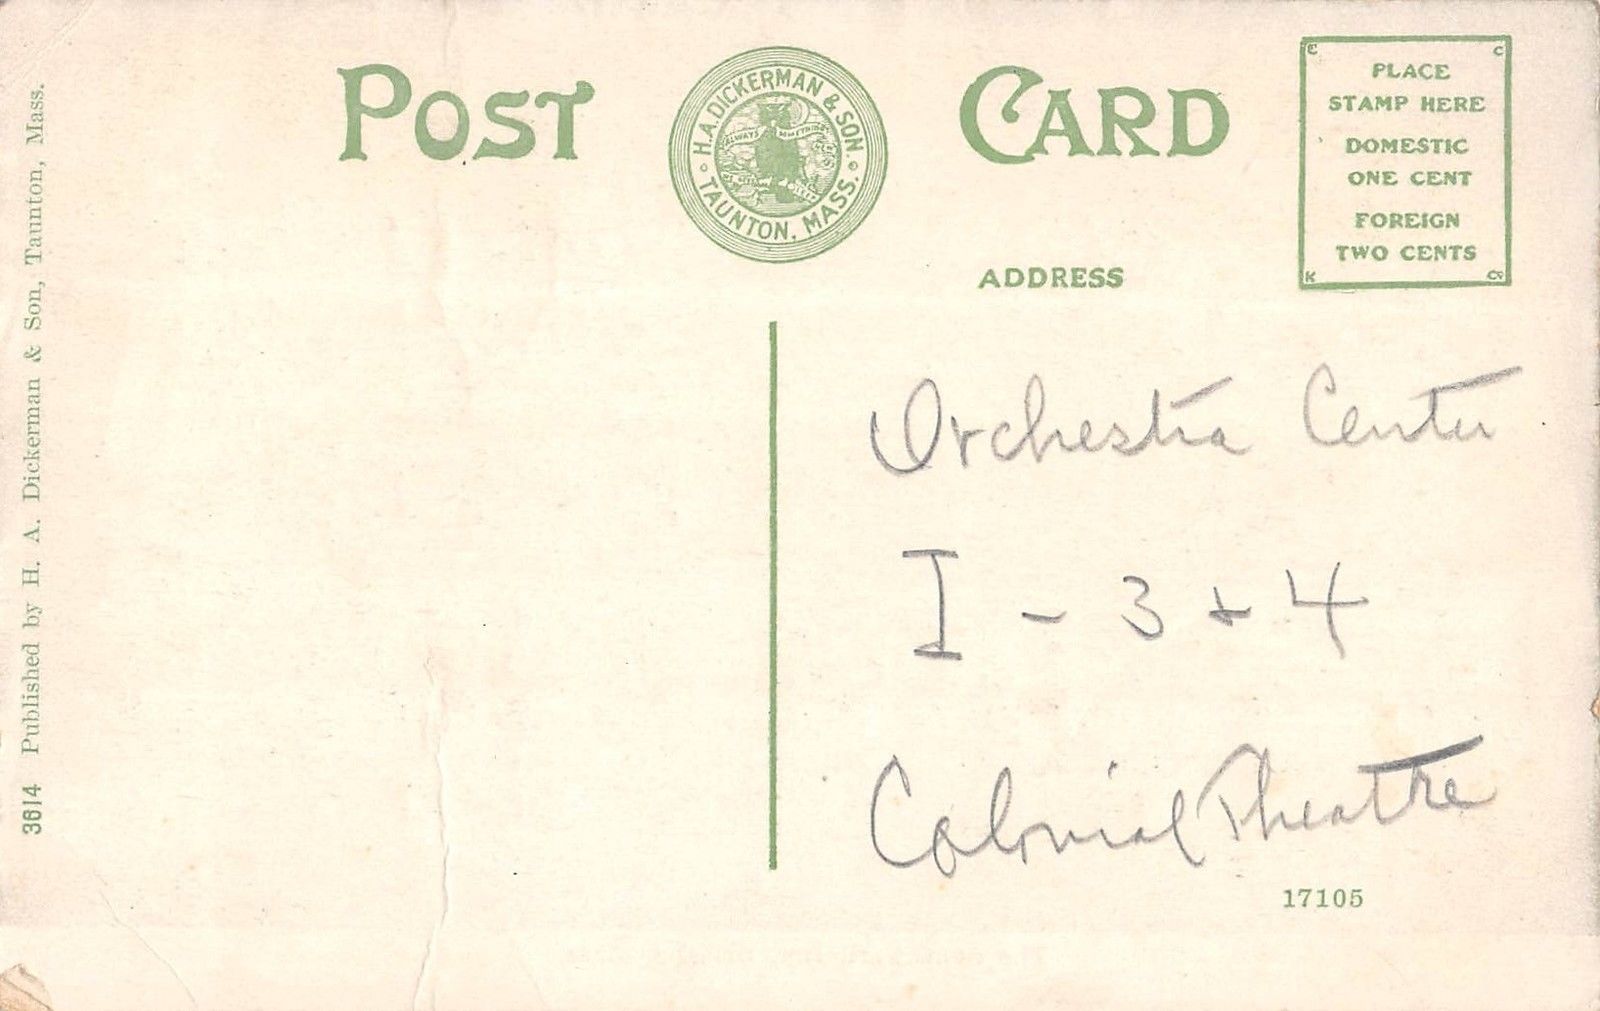 POST CARD
H. A. DICKERMAN & SON.
TAUNTON, MASS.
ALWAYS
PLACE
STAMP HERE
DOMESTIC
ONE CENT
FOREIGN
TWO CENTS
C C K Co
ADDRESS
Orchestra Center
I - 3 + 4
Colonial Theatre
17105
3614 Published by H. A. Dickerman & Son, Taunton, Mass.